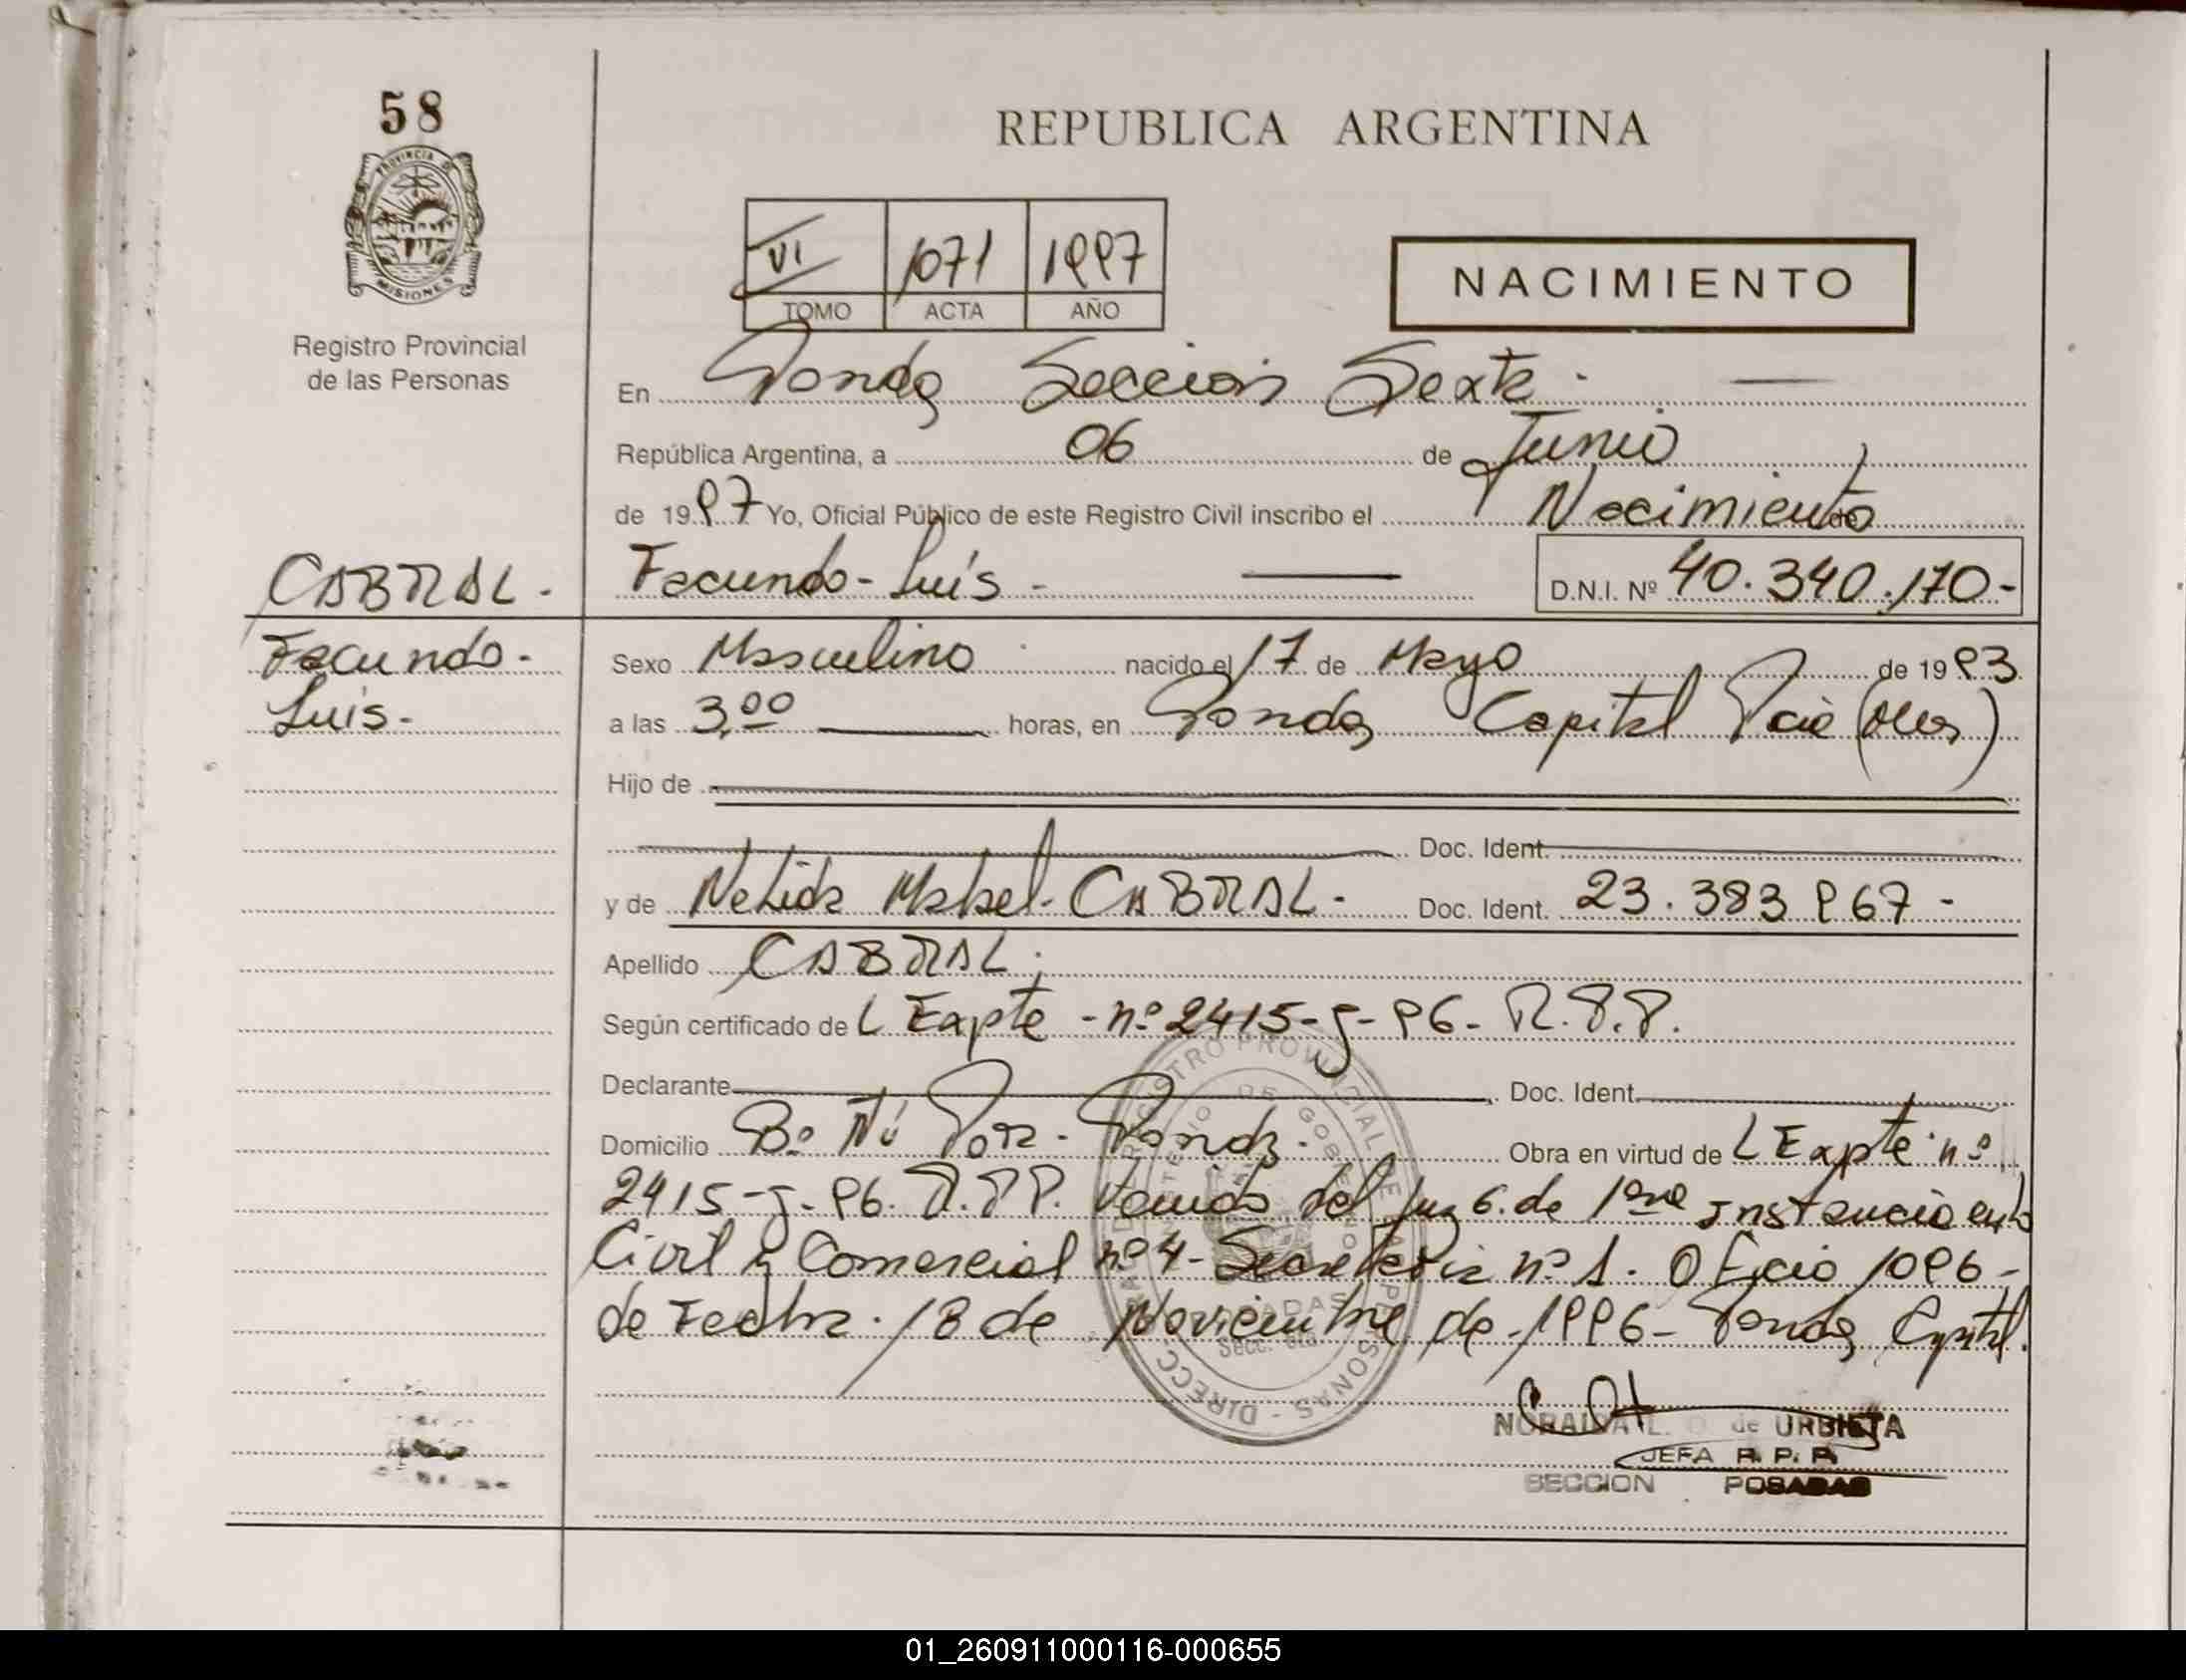 58
REPUBLICA ARGENTINA
PROVINCIA DE
MISIONES
Registro Provincial
de las Personas
VI 1071 1997
TOMO ACTA AÑO
NACIMIENTO
En Posadas Sección Sexta.
República Argentina, a 06 de Junio
de 1997 Yo, Oficial Público de este Registro Civil inscribo el Nacimiento de
CABRAL.
Facundo-Luís - D.N.I. Nº 40.340.170-
Facundo-
Luis-
Sexo Masculino nacido el 17 de Mayo de 1993
a las 3,00 horas, en Posadas Capital
Hijo de
Doc. Ident.
y de Nelida Mabel CABRAL- Doc. Ident. 23.383 967-
Apellido CABRAL
Según certificado de L Expte -nº 2415-J-96- R.P.P.
Declarante Doc. Ident.
Domicilio Bº Posadas. Obra en virtud de L Expte nº
2415-J-96. R.P.P. venido del Juzg. de 1era Instancia en lo
Civil y Comercial nº 4- Secretaría nº 1. Oficio 1096-
de Fecha. 18 de Noviembre de 1996- Posadas Capital.
DIRECC. REGISTRO PROVINCIAL DE LAS PERSONAS
MINISTERIO DE GOBIERNO
POSADAS
Secc. 6ta
de URBIETA
JEFA R. P. P.
SECCION POSADAS
01_260911000116-000655